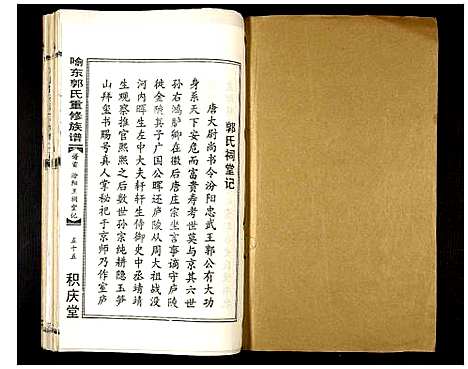 郭氏祠堂记
唐大尉尚书令汾阳忠武王郭公有大功
身系天下安危而富贵寿考世莫与京其六世
孙右鸿胪卿在徽后唐庄宗坐言事谪守庐陵
徙金陵其子广国公晖还庐陵从周大祖战没
河内晖生左中大夫轩轩生御史中丞靖靖
生观察推官熙熙之后数世孙宗纯耕隐玉笋
山拜玺书赐号真人掌秘祀于京师乃作室庐
喻东郭氏重修族谱
谱首
汾阳王祠堂记
五十五
积庆堂